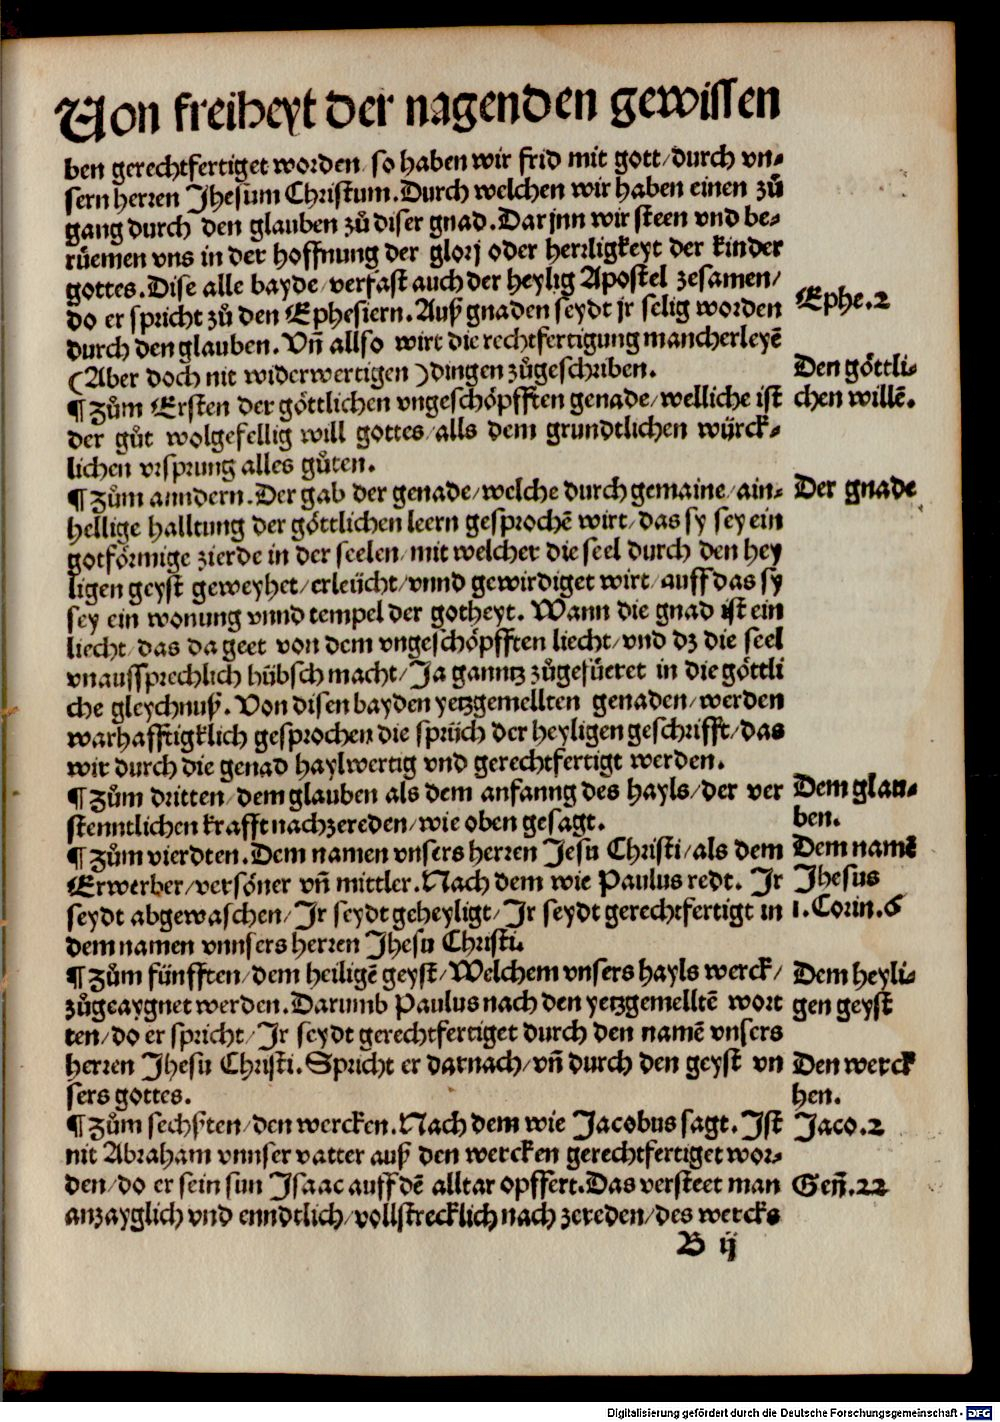 Von freiheyt der nagenden gewissen
ben gerechtfertiget worden/ so haben wir frid mit gott/ durch vn⸗
sern herren Jhesum Christum. Durch welchen wir haben einen zů
gang durch den glauben zů diser gnad. Dar jnn wir steen vnd be⸗
rüemen vns in der hoffnung der glorj oder herrligkeyt der kinder
gottes. Dise alle bayde/ verfast auch der heylig Apostel zesamen/
do er spricht zů den Ephesiern. Auß gnaden seydt jr selig worden
Ephe. 2
durch den glauben. Vñ allso wirt die rechtfertigung mancherleyē
(Aber doch nit widerwertigen) dingen zůgeschriben.
Den göttli⸗
¶ Zům Ersten der göttlichen vngeschöpfften genade/ welliche ist
chen willē.
der gůt wolgefellig will gottes/ alls dem grundtlichen wÿrck⸗
lichen vrsprung alles gůten.
¶ Zům anndern. Der gab der genade/ welche durch gemaine/ ain⸗
Der gnade
hellige halltung der göttlichen leern gesprochē wirt/ das sy sey ein
gotförmige zierde in der seelen/ mit welcher die seel durch den hey
ligen geyst geweyhet/ erleücht/ vnnd gewirdiget wirt/ auff das sÿ
sey ein wonung vnnd tempel der gotheyt. Wann die gnad ist ein
liecht/ das da geet von dem vngeschöpfften liecht/ vnd dz die seel
vnaussprechlich hübsch macht/ Ja ganntz zůgefüeret in die göttli
che gleychnuß. Von disen bayden yetzgemellten genaden/ werden
warhafftigklich gesprochen die sprüch der heyligen geschrifft/ das
wir durch die genad haylwertig vnd gerechtfertigt werden.
¶ Zům dritten/ dem glauben als dem anfanng des hayls/ der ver
Dem glau⸗
stenntlichen krafft nachzereden/ wie oben gesagt.
ben.
¶ Zům vierdten. Dem namen vnsers herren Jesu Christi/ als dem
Dem namē
Erwerber/ versöner vñ mittler. Nach dem wie Paulus redt. Jr
Jhesus
seydt abgewaschen/ Jr seydt geheyligt/ Jr seydt gerechtfertigt in
1. Corin. 6
dem namen vnnsers herren Jhesu Christi.
¶ Zům fünfften/ dem heiligē geyst/ Welchem vnsers hayls werck/
Dem heyli⸗
zůgeaygnet werden. Darumb Paulus nach den yetzgemelltē wort
gen geyst
ten/ do er spricht/ Jr seydt gerechtfertiget durch den namē vnsers
herren Jhesu Christi. Spricht er darnach/ vñ durch den geyst vn
Den werck
sers gottes.
hen.
¶ Zům sechsten/ den wercken. Nach dem wie Jacobus sagt. Jst
Jaco. 2
nit Abraham vnnser vatter auß den wercken gerechtfertiget wor⸗
den/ do er sein sun Jsaac auff dē alltar opffert. Das versteet man
Geñ. 22
anzayglich vnd enndtlich/ vollstrecklich nach zereden/ des wercks
B ij
Digitalisierung gefördert durch die Deutsche Forschungsgemeinschaft - DFG